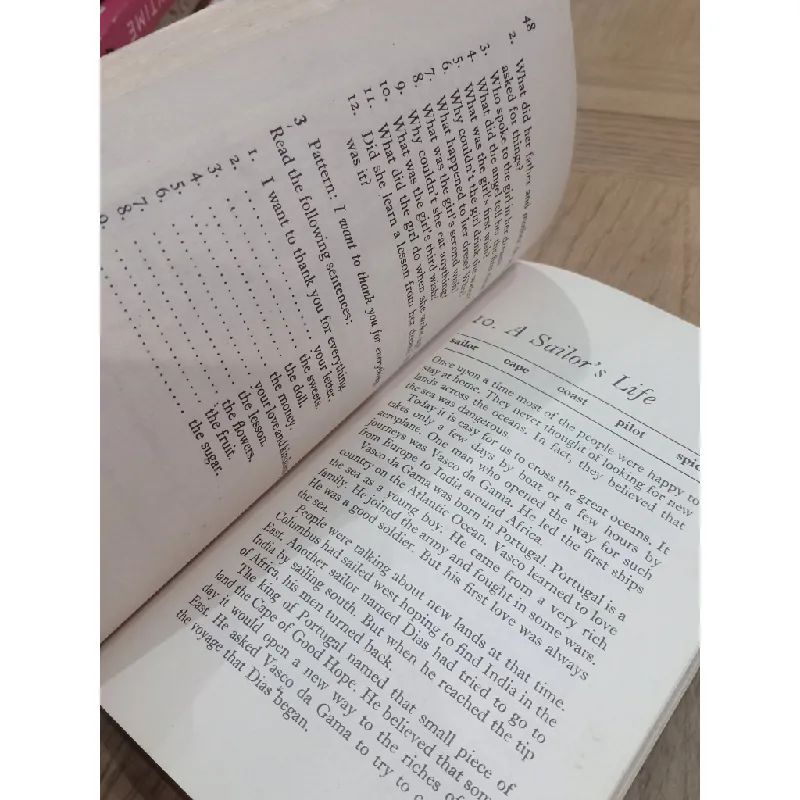 48
2. What did her father and
asked for things?
3. Who spoke to the girl in her dream?
4. What did the angel tell her
5. What was the girl's first wish?
6. Why couldn't the girl drink the
7. What happened to her dress? Why?
8. What was the girl's second wish?
9. Why couldn't she eat anything?
10. What was the girl's third wish?
11. What did the girl do when she woke up?
12. Did she learn a lesson from her dream?
was it?
3 Pattern: I want to thank you for everything.
Read the following sentences:
1. I want to thank you for everything.
2. your letter.
3. the sweets.
4. the doll.
5. the money.
6. your love and kindness.
7. the lesson.
8. the flowers.
9. the fruit.
the sugar.
10. A Sailor's Life
sailor cape coast pilot
Once upon a time most of the people were happy to
stay at home. They never thought of looking for new
lands across the oceans. In fact, they believed that
the sea was dangerous.
Today it is easy for us to cross the great oceans. It
takes only a few days by boat or a few hours by
aeroplane. One man who opened the way for such
journeys was Vasco da Gama. He led the first ships
from Europe to India around Africa.
Vasco da Gama was born in Portugal. Portugal is a
country on the Atlantic Ocean. Vasco learned to love
the sea as a young boy. He came from a very rich
family. He joined the army and fought in some wars.
He was a good soldier. But his first love was always
the sea.
People were talking about new lands at that time.
Columbus had sailed west hoping to find India in the
East. Another sailor named Dias had tried to go to
India by sailing south. But when he reached the tip
of Africa, his men turned back
The king of Portugal named that small piece of
land the Cape of Good Hope. He believed that some
day it would open a new way to the riches of
East. He asked Vasco da Gama to try to
the voyage that Dias began.